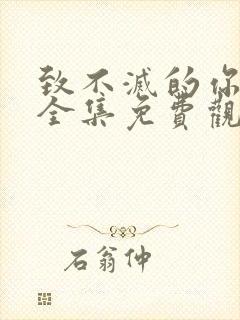 致不滅的你
全集免費觀
石翁仲